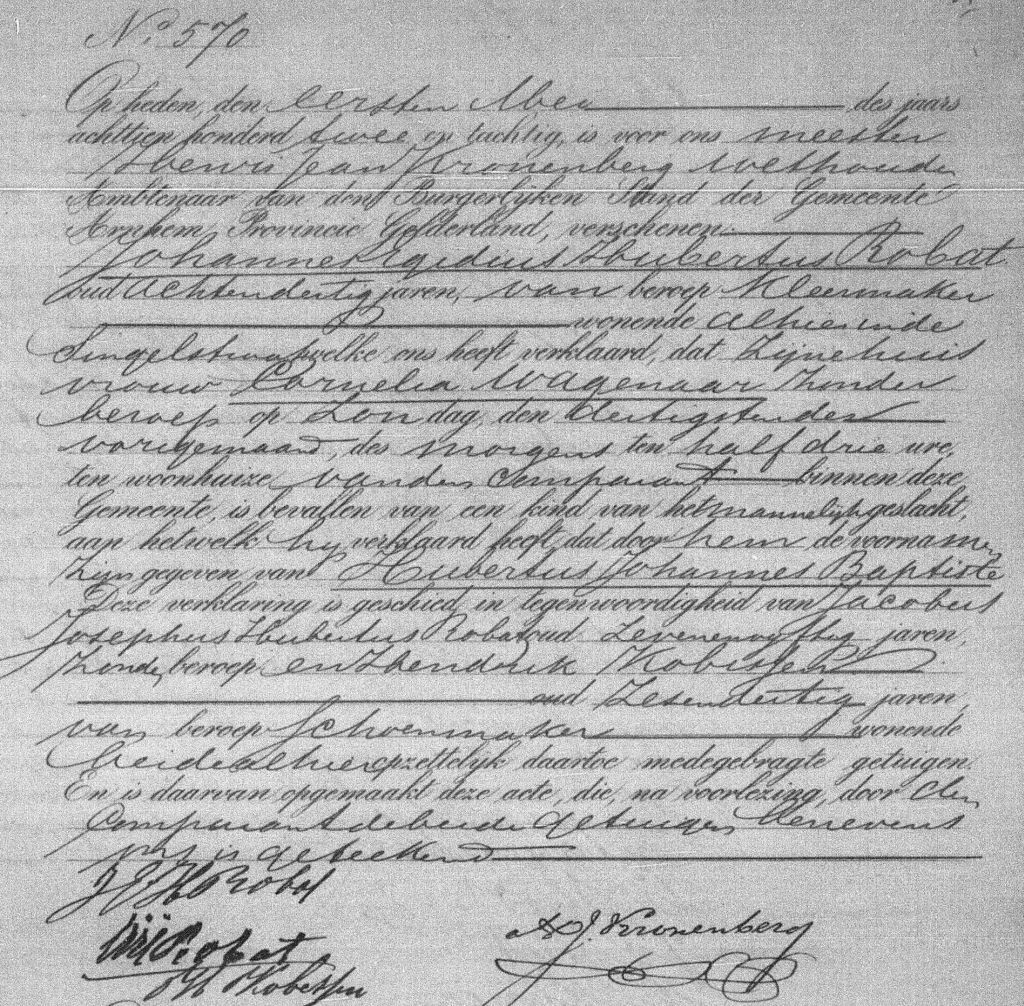 No. 570
Op heden, den eersten Mei des jaars
achttien honderd twee en tachtig, is voor ons meester
Henri Jean Kronenberg Wethouder
Ambtenaar van den Burgerlijken Stand der Gemeente
Arnhem, Provincie Gelderland, verschenen:
Johannes Egidius Hubertus Robat
oud Achtendertig jaren, van beroep Kleermaker
wonende alhier inde
Singelstraat welke ons heeft verklaard, dat Zijne huis
vrouw Cornelia Wagenaar Zonder
beroep op Zondag, den dertigsten der
vorige maand, des morgens ten half drie ure,
ten woonhuize van den Comparant binnen deze
Gemeente, is bevallen van een kind van het mannelijk geslacht,
aan hetwelk hij verklaard heeft, dat door hem de voornamen
Zijn gegeven, van Hubertus Johannes Baptiste
Deze verklaring is geschied, in tegenwoordigheid van Jacobus
Josephus Hubertus Robat oud Zevenenvyftig jaren,
Zonder beroep en Hendrik Kobessen
oud Zesendertig jaren,
van beroep Schoenmaker wonende
beide alhier opzettelijk daartoe medegebragte getuigen.
En is daarvan opgemaakt deze acte, die, na voorlezing, door den
Comparant de beide Getuigen benevens
ons is geteekend
J E H Robat
Robat
H Kobessen
H J. Kronenberg